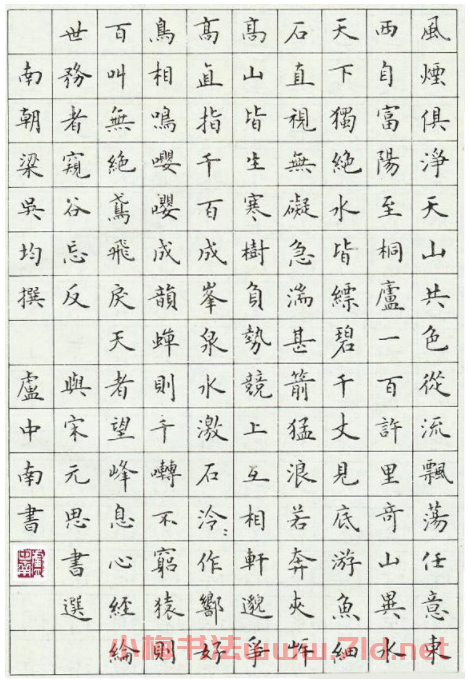 風煙俱淨天山共色從流飄蕩任意東
西自富陽至桐廬一百許里奇山異水
天下獨絕水皆縹碧千丈見底游魚細
石直視無礙急湍甚箭猛浪若奔夾岸
高山皆生寒樹負勢競上互相軒邈爭
高直指千百成峯泉水激石泠〻作響好
鳥相鳴嚶嚶成韻蟬則千囀不窮猿則
百叫無絕鳶飛戾天者望峰息心經綸
世務者窺谷忘反 與宋元思書選
南朝梁吳均撰 盧中南書
盧中南
小梅书法www.7ld.net